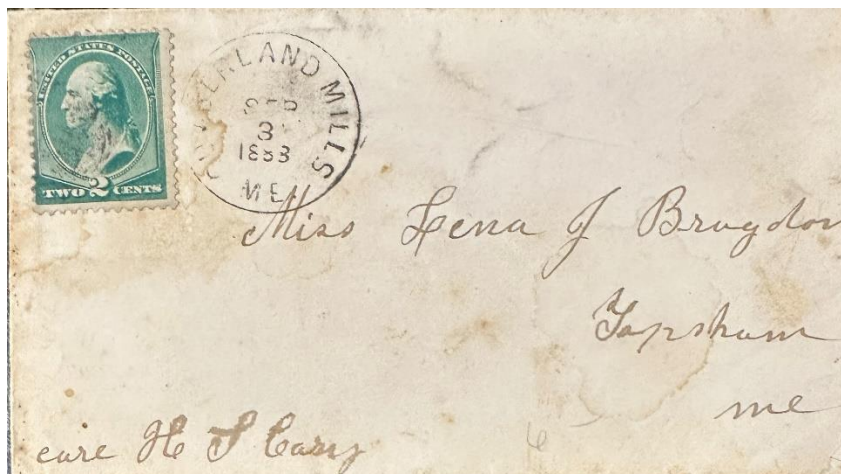 UNITED STATES POSTAGE
TWO 2 CENTS
CUMBERLAND MILLS
SEP
3
1888
ME
Miss Lena J Bragdon
Topsham
me
care H S Cary